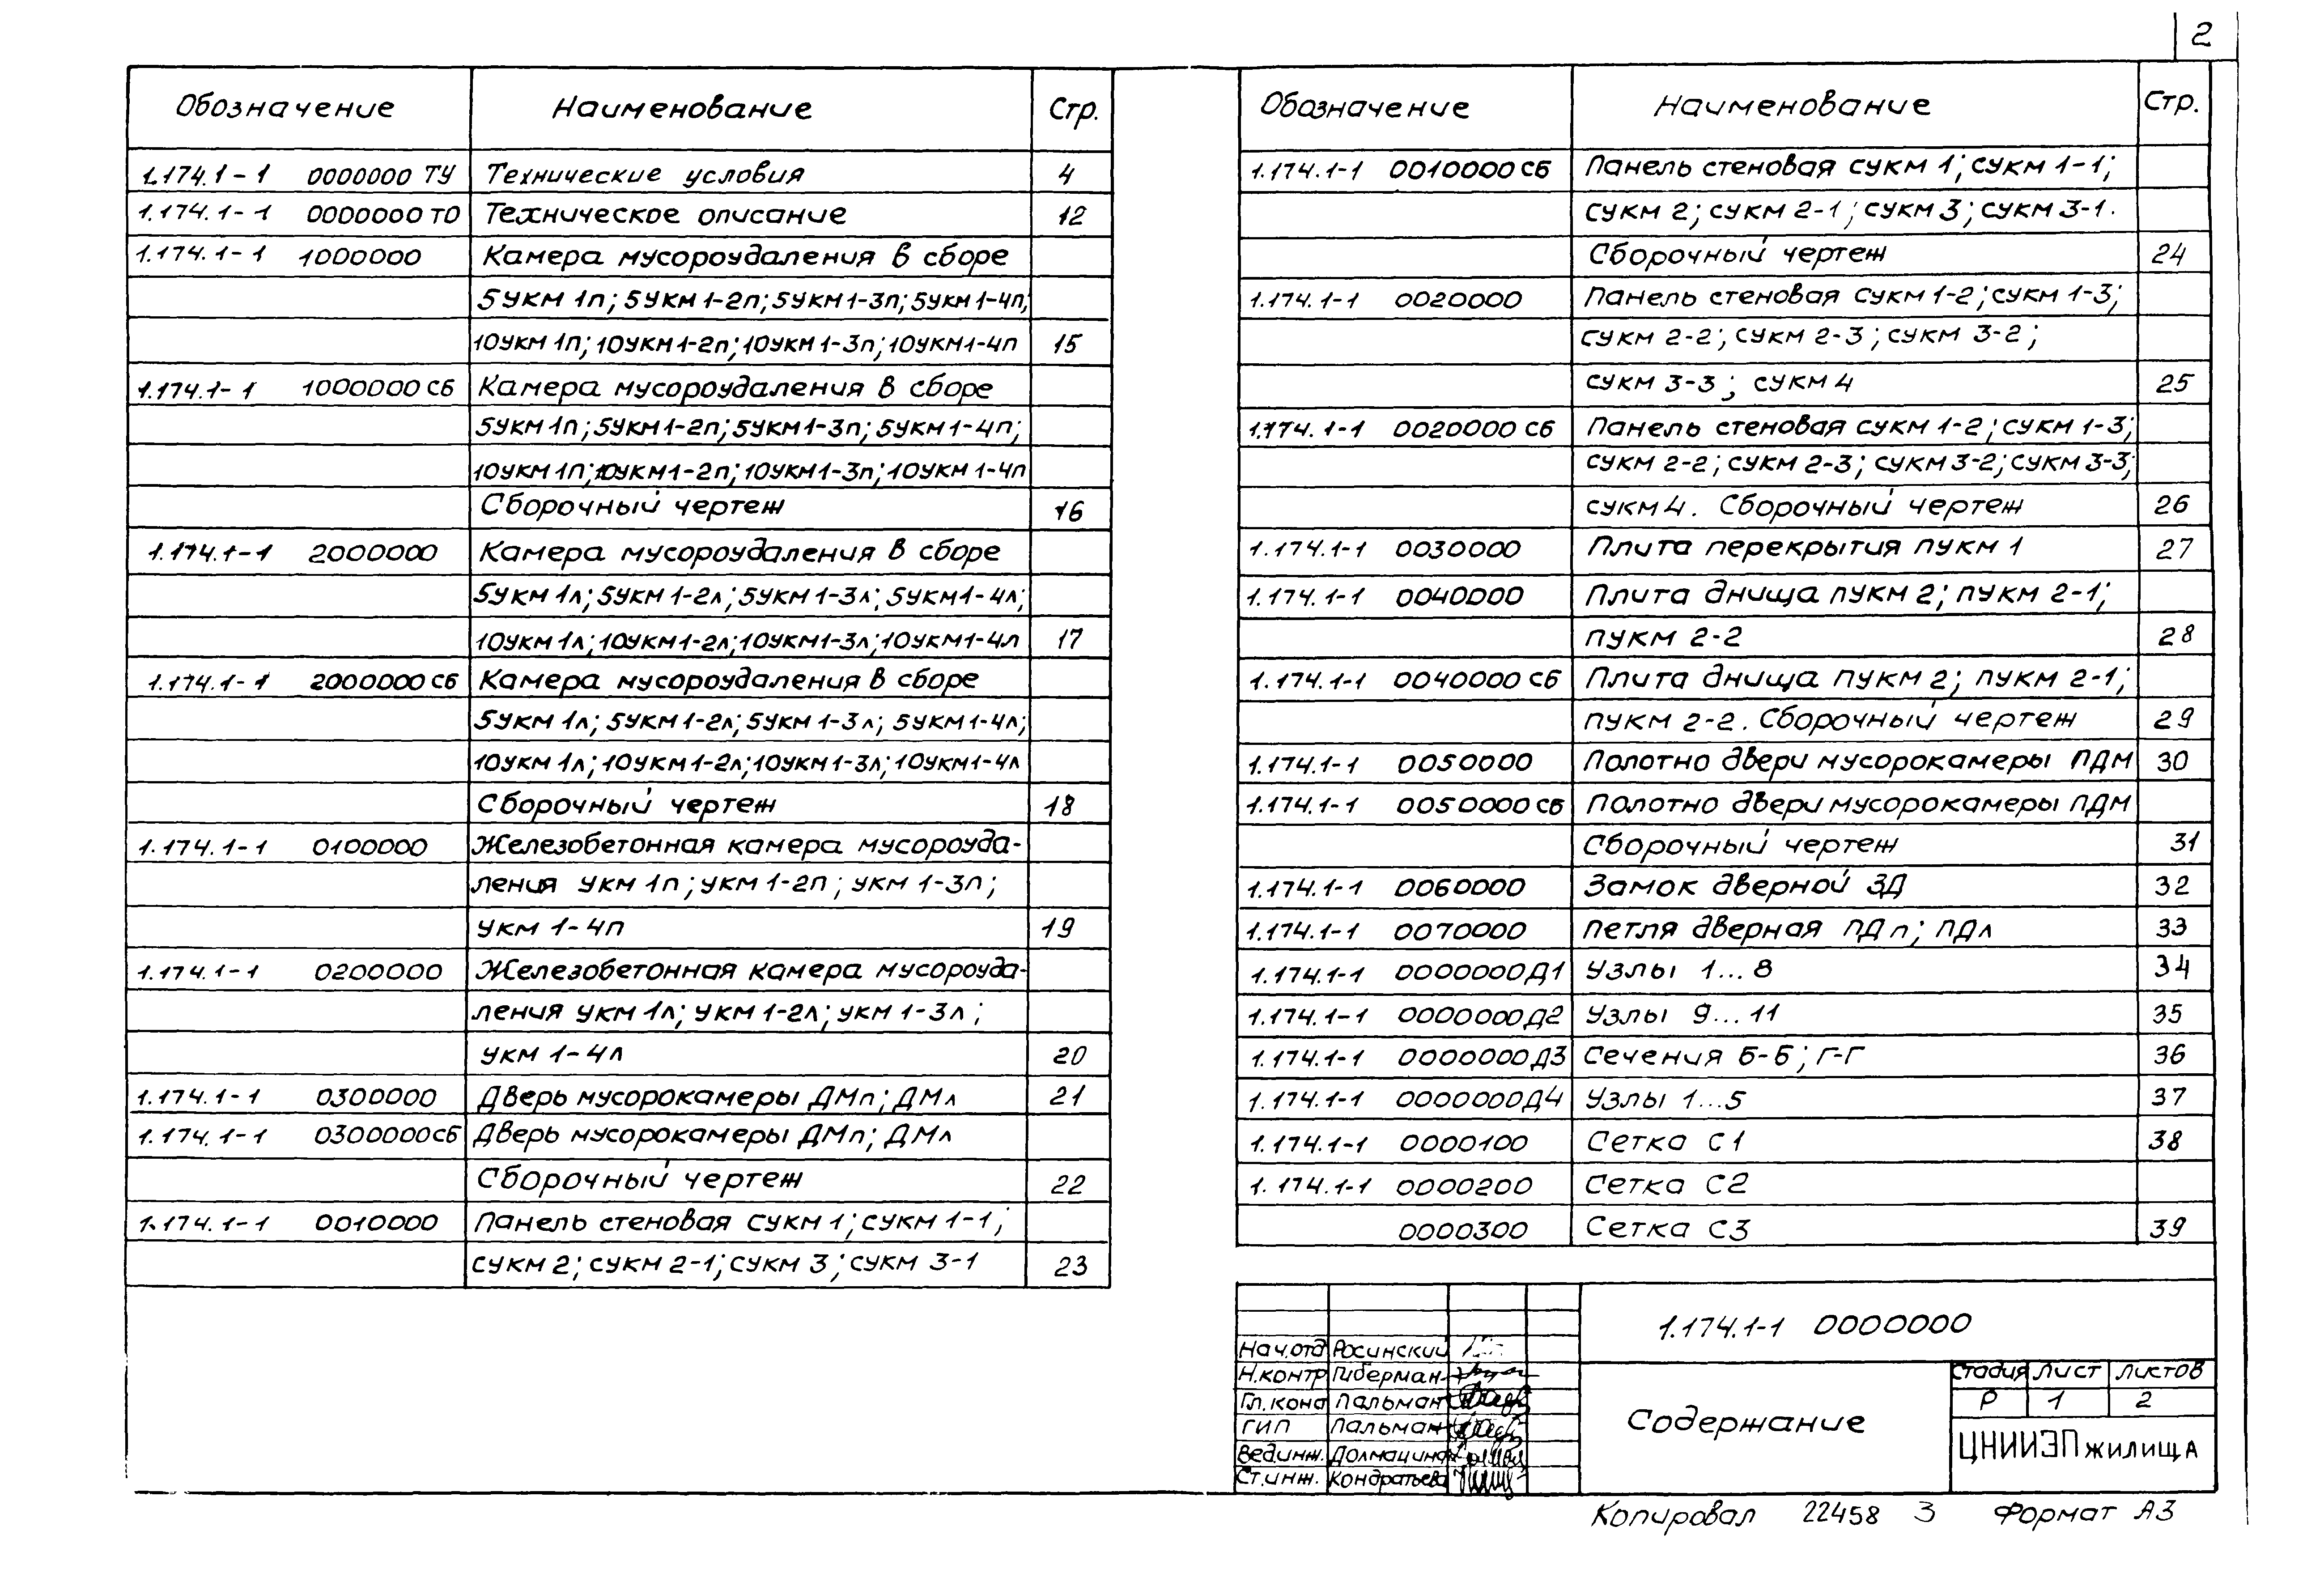 2
Обозначение Наименование Стр.
1.174.1-1 0000000 ТУ Технические условия 4
1.174.1-1 0000000 ТО Техническое описание 12
1.174.1-1 1000000 Камера мусороудаления в сборе
5УКМ 1п; 5УКМ 1-2п; 5УКМ 1-3п; 5УКМ 1-4п;
10УКМ 1п; 10УКМ 1-2п; 10УКМ 1-3п; 10УКМ 1-4п 15
1.174.1-1 1000000 СБ Камера мусороудаления в сборе
5УКМ 1п; 5УКМ 1-2п; 5УКМ 1-3п; 5УКМ 1-4п;
10УКМ 1п; 10УКМ 1-2п; 10УКМ 1-3п; 10УКМ 1-4п
Сборочный чертеж 16
1.174.1-1 2000000 Камера мусороудаления в сборе
5УКМ 1л; 5УКМ 1-2л; 5УКМ 1-3л; 5УКМ 1-4л;
10УКМ 1л; 10УКМ 1-2л; 10УКМ 1-3л; 10УКМ 1-4л 17
1.174.1-1 2000000 СБ Камера мусороудаления в сборе
5УКМ 1л; 5УКМ 1-2л; 5УКМ 1-3л; 5УКМ 1-4л;
10УКМ 1л; 10УКМ 1-2л; 10УКМ 1-3л; 10УКМ 1-4л
Сборочный чертеж 18
1.174.1-1 0100000 Железобетонная камера мусороуда-
ления УКМ 1п; УКМ 1-2п; УКМ 1-3п;
УКМ 1-4п 19
1.174.1-1 0200000 Железобетонная камера мусороуда-
ления УКМ 1л; УКМ 1-2л; УКМ 1-3л;
УКМ 1-4л 20
1.174.1-1 0300000 Дверь мусорокамеры ДМп; ДМл 21
1.174.1-1 0300000 СБ Дверь мусорокамеры ДМп; ДМл
Сборочный чертеж 22
1.174.1-1 0010000 Панель стеновая СУКМ 1; СУКМ 1-1;
СУКМ 2; СУКМ 2-1; СУКМ 3; СУКМ 3-1 23
Обозначение Наименование Стр.
1.174.1-1 0010000 СБ Панель стеновая СУКМ 1; СУКМ 1-1;
СУКМ 2; СУКМ 2-1; СУКМ 3; СУКМ 3-1.
Сборочный чертеж 24
1.174.1-1 0020000 Панель стеновая СУКМ 1-2; СУКМ 1-3;
СУКМ 2-2; СУКМ 2-3; СУКМ 3-2;
СУКМ 3-3; СУКМ 4 25
1.174.1-1 0020000 СБ Панель стеновая СУКМ 1-2; СУКМ 1-3;
СУКМ 2-2; СУКМ 2-3; СУКМ 3-2; СУКМ 3-3;
СУКМ 4. Сборочный чертеж 26
1.174.1-1 0030000 Плита перекрытия ПУКМ 1 27
1.174.1-1 0040000 Плита днища ПУКМ 2; ПУКМ 2-1;
ПУКМ 2-2 28
1.174.1-1 0040000 СБ Плита днища ПУКМ 2; ПУКМ 2-1;
ПУКМ 2-2. Сборочный чертеж 29
1.174.1-1 0050000 Полотно двери мусорокамеры ПДМ 30
1.174.1-1 0050000 СБ Полотно двери мусорокамеры ПДМ
Сборочный чертеж 31
1.174.1-1 0060000 Замок дверной ЗД 32
1.174.1-1 0070000 Петля дверная ПДп; ПДл 33
1.174.1-1 0000000 Д1 Узлы 1...8 34
1.174.1-1 0000000 Д2 Узлы 9...11 35
1.174.1-1 0000000 Д3 Сечения Б-Б; Г-Г 36
1.174.1-1 0000000 Д4 Узлы 1...5 37
1.174.1-1 0000100 Сетка С1 38
1.174.1-1 0000200 Сетка С2
0000300 Сетка С3 39
1.174.1-1 0000000
Нач.отд Росинский
Н.контр Гиберман
Гл.конс Пальман
ГИП Пальман
Вед.инж. Долмацина
Ст.инж. Кондратьева
Содержание
Стадия Лист Листов
Р 1 2
ЦНИИЭП жилища
Копировал 22458 3 Формат А3